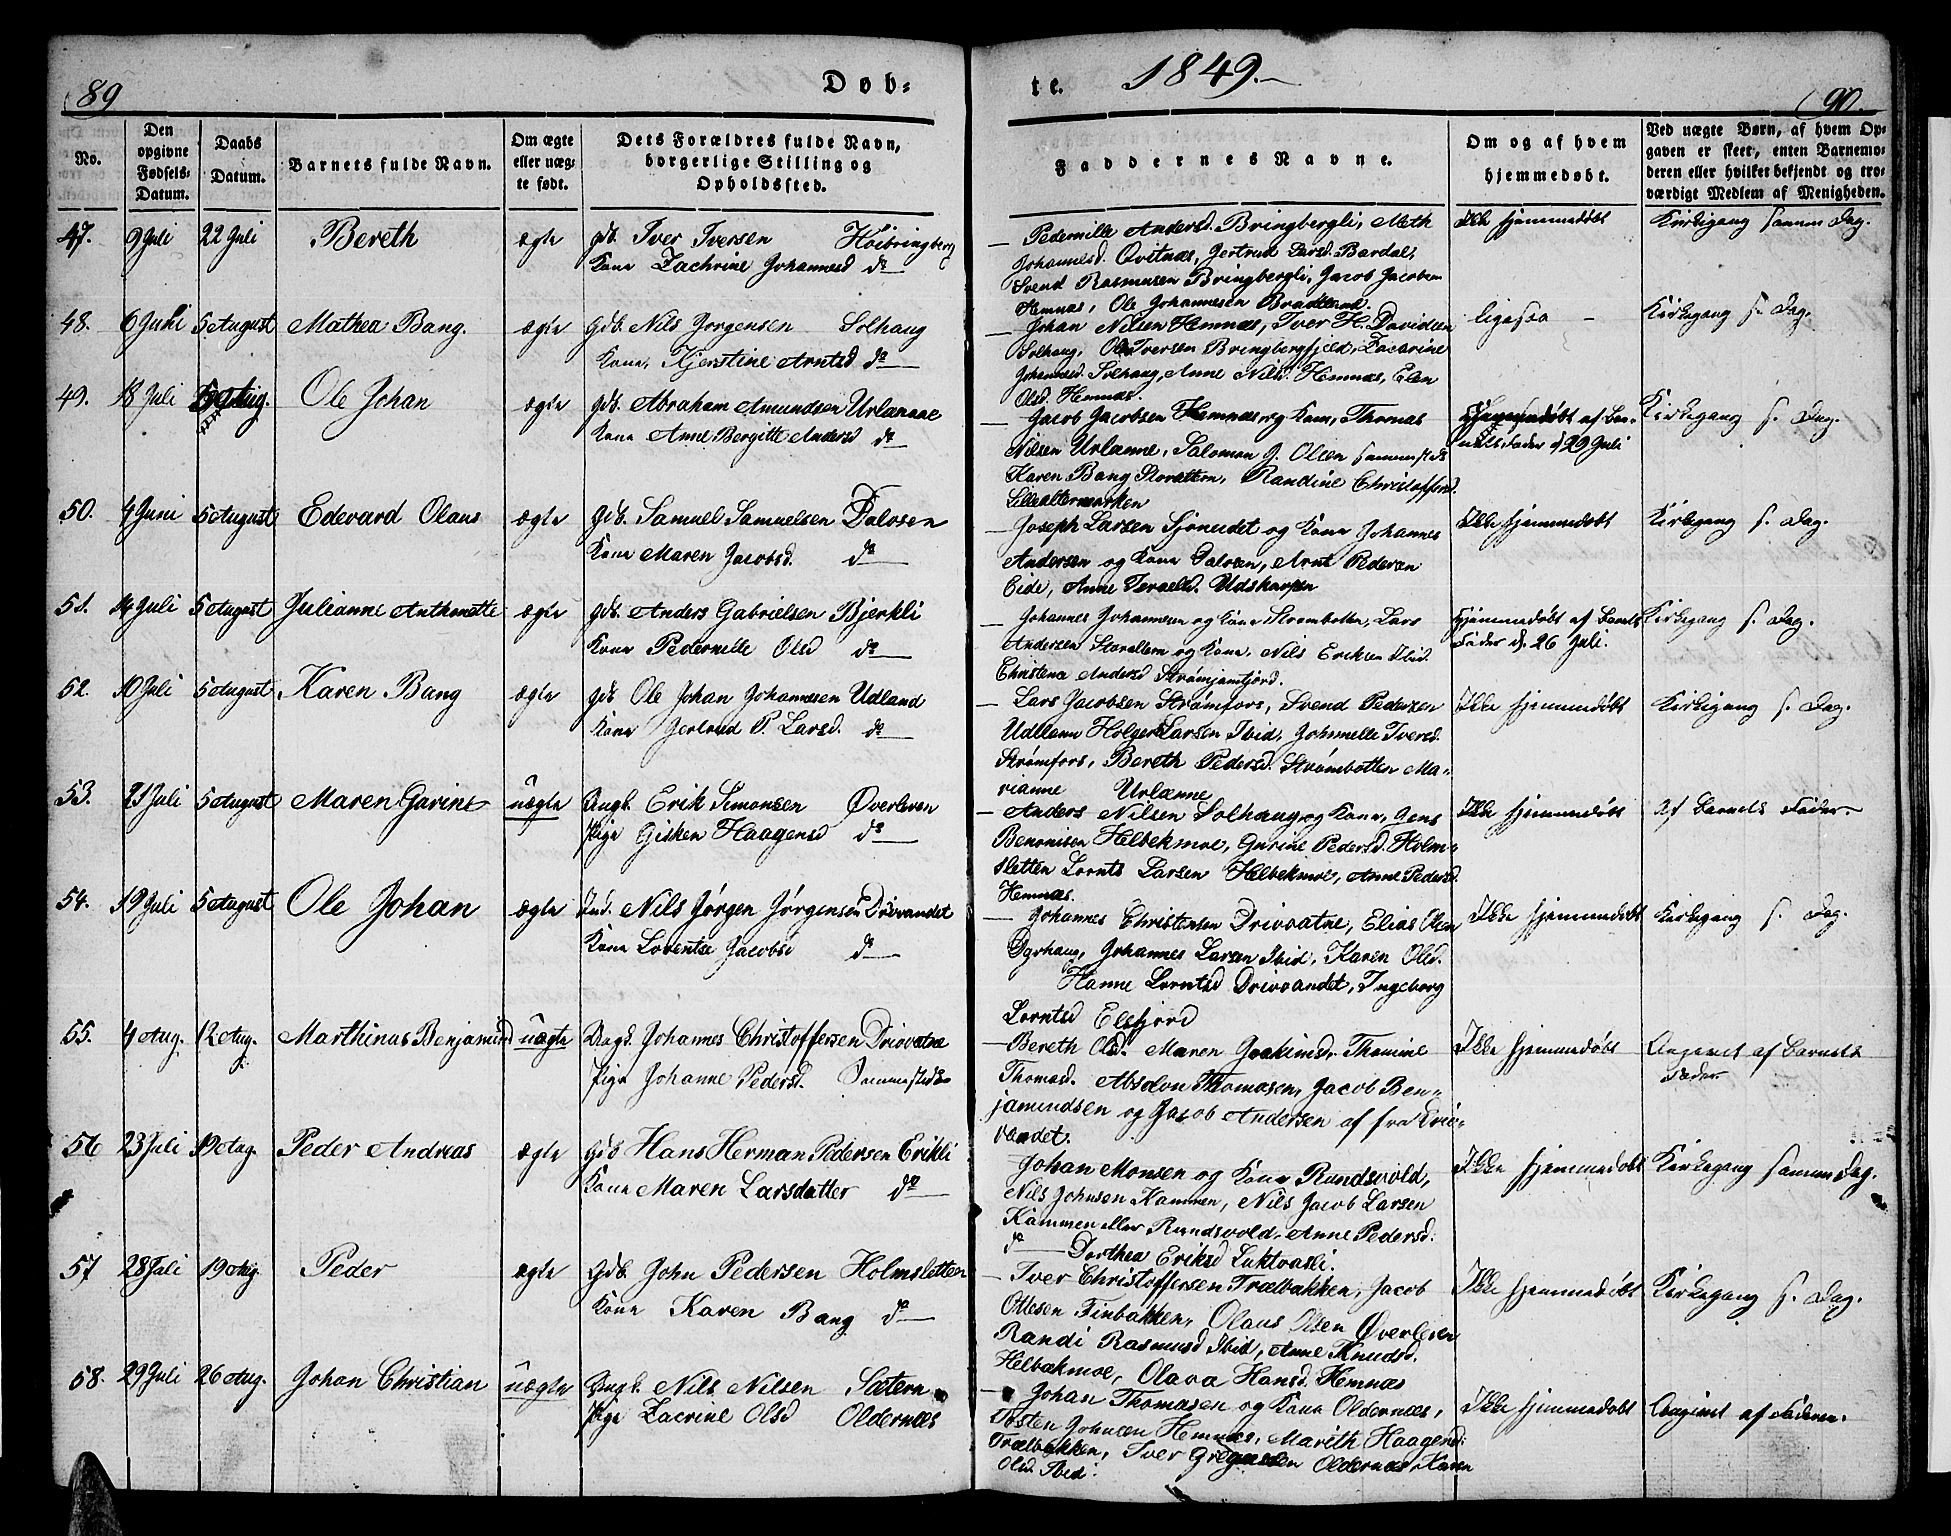 89
Døb-
te.
1849.
90.
No.
Den opgivne Fødsels-Datum.
Daabs Datum.
Barnets fulde Navn.
Om ægte eller uægte født.
Dets Forældres fulde Navn, borgerlige Stilling og Opholdsted.
Faddernes Navne.
Om og af hvem hjemmedøbt.
Ved uægte Børn, af hvem Opgaven er skeet, enten Barnemoderen eller hvilket bekjendt og troværdigt Medlem af Menigheden.
47. 9 Juli 22 Juli Bereth ægte Gdb. Iver Iversen Høibringberg
Kone Zachrine Johannesd do
Pedernille Andersd. Bringbergli, Meth
Johannesd. Qvitnæs, Gertrud Larsd. Bardal,
Svend Rasmusen Bringbergli, Jacob Jacobsen
Hemnæs, Ole Johannesen
Ikke hjemmedøbt
Kirkegang samme Dag.
48. 6 Juli 5 August Mathea Bang. ægte Gdb. Nils Jørgensen Solhaug
Kone, Kjerstine Arntsd do
Johan Nilsen Hemnæs, Iver H. Davidsen
Solhaug, Ole Iversen Bringbergfjeld, Zacarine
Johannesd. Solhaug, Anne Nilsd. Hemnæs, Elen
Olsd. Hemnæs.
ligesaa
Kirkegang s. Dag.
49. 18 Juli Aug. Ole Johan ægte Gdb. Abraham Amundsen Urlænane
Kone Anne Bergitte Andersd do
Jacob Jacobsen Hemnæs og Kone, Thomas
Nilsen Urlænne, Salomon J. Olsen sammesteds
Karen Bang Storaltern, Randine Christoffersd.
Lillealtermarken
Hjemmedøbt af Barnets Fader d 29 Juli
Kirkegang s. Dag.
50. 4 Juni 5 August Edevard Olaus ægte Gdb. Samuel Samuelsen Dalosen
Kone Maren Jacobsd. do
Joseph Larsen Sjønudet og Kone Johannes
Andersen og Kone Dalosen, Arnt Pedersen
Eide, Anne Israelsd. Udskarpen
Ikke hjemmedøbt
Kirkegang s. Dag.
51. 14 Juli 5 August Julianne Anthonette ægte Gdb. Anders Gabrielsen Bjerkli
Kone Pedernille Olsd do
Johannes Johannesen og Kone Strømbotten, Lars
Andersen Storaltern og Kone, Nils Eriksen Ibid.
Christena Andersd
Hjemmedøbt af Barnets
Fader d. 26 Juli.
Kirkegang s. Dag.
52. 10 Juli 5 August Karen Bang ægte Gdb Ole Johan Johannesen Udland
Kone Gertrud P. Larsd. do
Lars Jacobsen Strømfors, Svend Pedersen
Holger Larsen Ibid, Johnnelle Iversd.
Strømfors, Bereth Pedersd. Strømbotten Ma-
rianne Urlænne
Ikke hjemmedøbt
Kirkegang s. Dag.
53. 21 Juli 5 August Maren Gurine uægte Ungk. Erik Simonsen Øverleren
Pige Gisken Haagensd do
Anders Nilsen Solhaug og Kone, Jens
Benonisen Helbekmoe, Gurine Pedersd. Holm-
sletten Lornts Larsen Helbekmoe, Anne Pedersd.
Hemnæs.
Ikke hjemmedøbt
Af Barnets Fader.
54. 19 Juli 5 August Ole Johan ægte Ind. Nils Jørgen Jørgensen Drivvandet
Kone Lorentse Jacobsd do
Johannes Christensen Drivvatne, Elias Olsen
Dyrhaug, Johannes Larsen Ibid, Karen Olsd.
Hanne Lorntsd Drivvandet, Ingeborg
Lorntsd Elsfjord
Ikke hjemmedøbt
Kirkegang s. Dag.
55. 4 Aug. 12 Aug. Marthinus Benjamind uægte Johannes Christoffersen Drivvatne
Pige Johanne Pedersd. Sammesteds
Bereth Olsd. Maren Joakimsd. Thomine
Thomasd. Absolon Thomasen, Jacob Ben-
jamindsen og Jacob Andersen af fra Driv-
vandet.
Ikke hjemmedøbt
Angivet af Barnets
Fader
56 23 Juli 19 Aug. Peder Andreas ægte Gdb Hans Herman Pedersen Erikli
Kone Maren Larsdatter do
Johan Monsen og Kone Rundsvold,
Nils Johnsen Kammen, Nils Jacob Larsen
Kammen eller Rundsvold, Anne Pedersd.
do Dorthea Eriksd Luktvasli.
Ikke hjemmedøbt
Kirkegang samme Dag.
57 28 Juli 19 Aug. Peder ægte Gdb. John Pedersen Holmsletten
Kone Karen Bang do
Iver Christoffersen Trælbakken, Jacob
Ottesen Finbakken, Olaus Olsen Øverleren
Randi Rasmusd Ibid, Anne Knudsd.
Helbækmoe, Olava Hansd. Hemnæs
Ikke hjemmedøbt
Kirkegang s. Dag.
58. 29 Juli 26 Aug. Johan Christian uægte Ungk. Nils Nilsen Sætern
Pige Zacrine Olsd Oldernæs
Johan Thomasen og Kone Oldernæs,
Tosten Johnsen Hemnæs, Marith Haagensd.
Trælbakken, Iver Oldernæs, Karen
Olsd. Ibid.
Ikke hjemmedøbt
Angivet af Faderen.